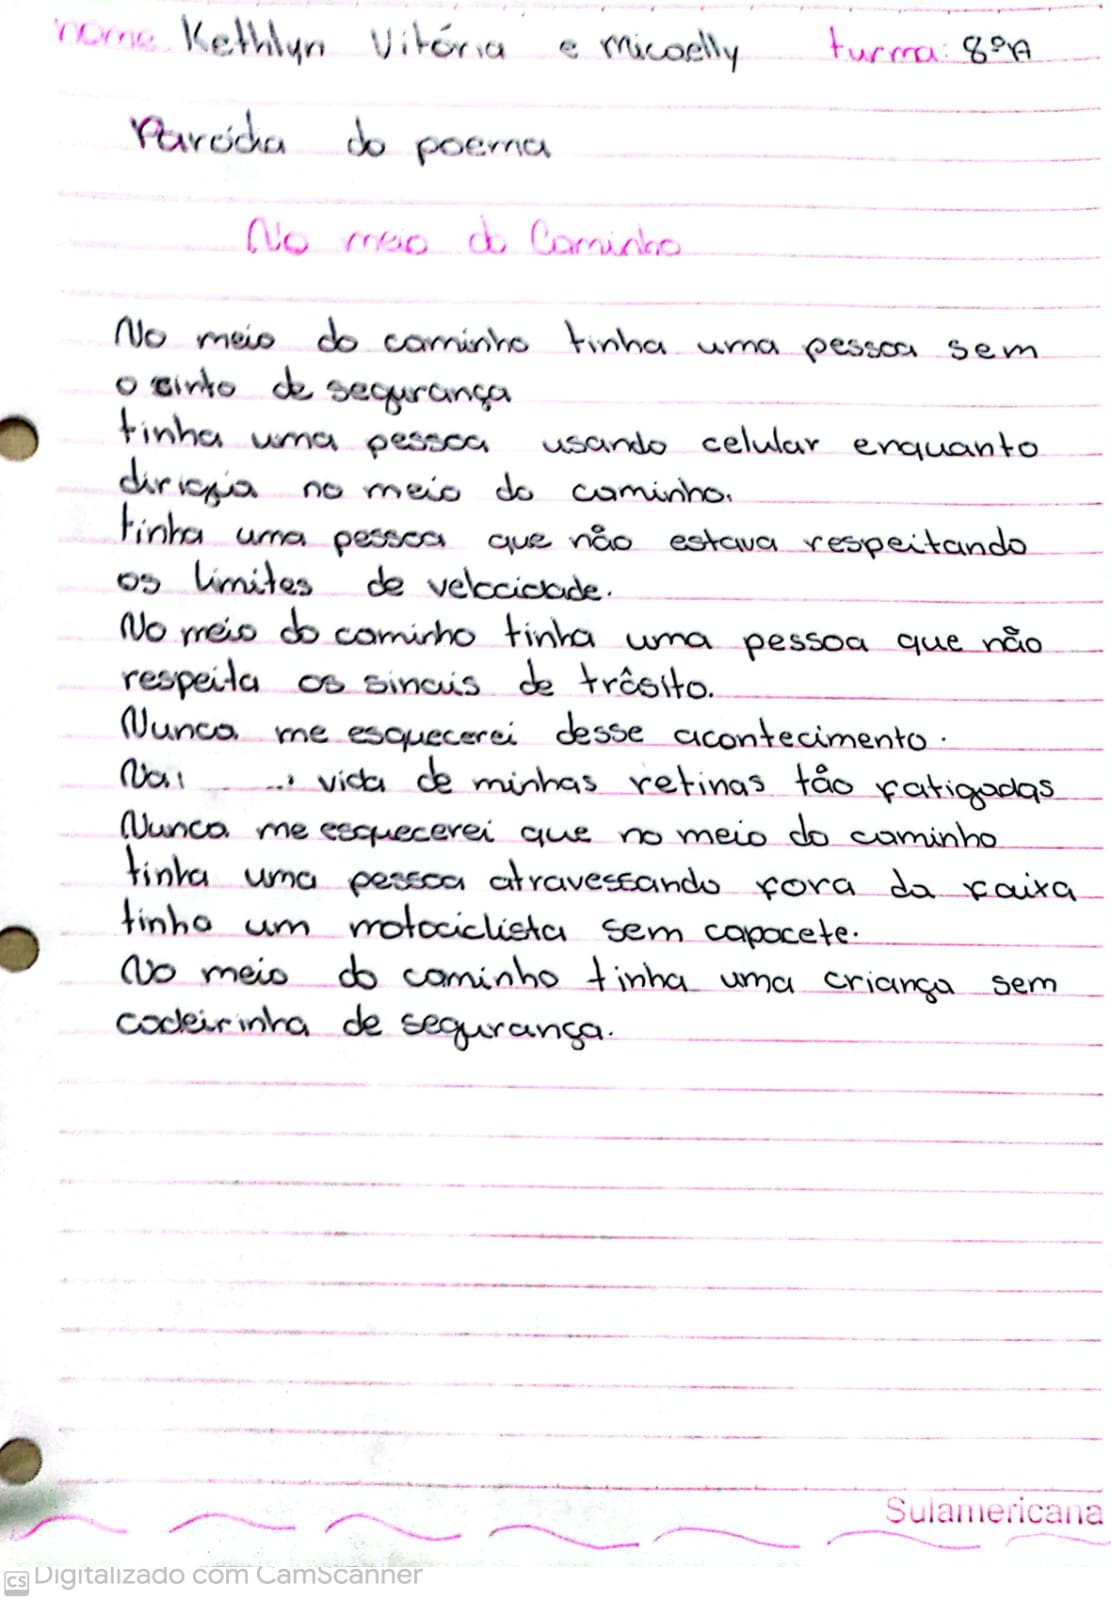 nome Kethlyn Vitória e Micaelly turma: 8ºA
Paródia do poema
No meio do Caminho
No meio do caminho tinha uma pessoa sem
o cinto de segurança
tinha uma pessoa usando celular enquanto
dirigia no meio do caminho.
tinha uma pessoa que não estava respeitando
os limites de velocidade.
No meio do caminho tinha uma pessoa que não
respeita os sinais de trâsito.
Nunca me esquecerei desse acontecimento.
vida de minhas retinas tão fatigadas
Nunca me esquecerei que no meio do caminho
tinha uma pessoa atravessando fora da faixa
tinha um motociclista sem capacete.
No meio do caminho tinha uma criança sem
cadeirinha de segurança.
Sulamericana
CS Digitalizado com CamScanner